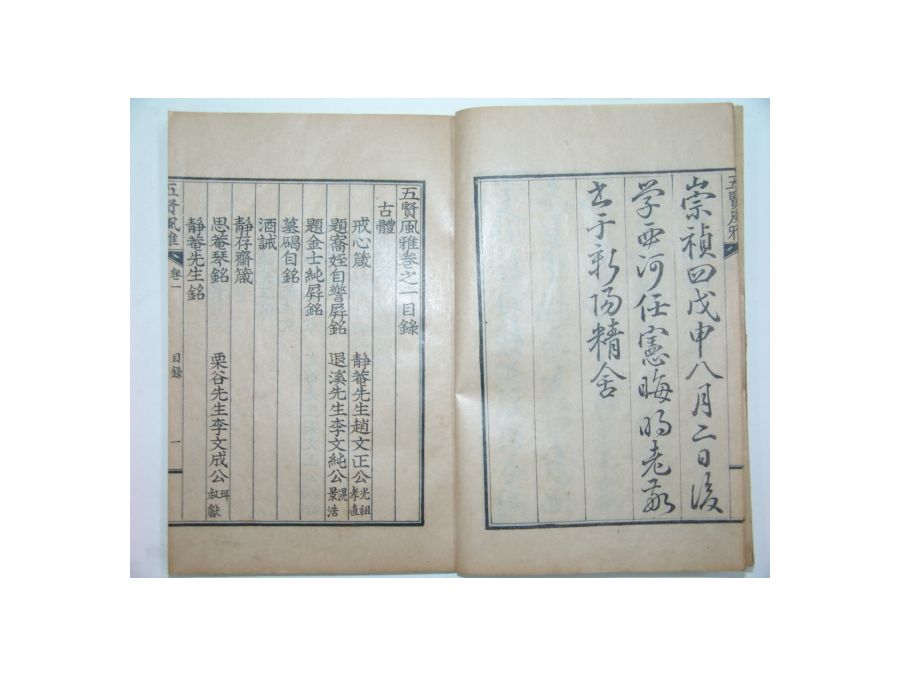 五賢風雅
崇禎四戊申八月二日後
学西河任憲晦明老敬
书于新陽精舍
五賢風雅卷之一目錄
古體
戒心箴 靜菴先生趙文正公 光祖 孝直
題寯姪自警屏銘 退溪先生李文純公 滉 景浩
題金士純屏銘
墓碣自銘
酒誡
靜存齋箴
思菴琴銘 栗谷先生李文成公 珥 叔獻
靜菴先生銘
五賢風雅 卷一 目錄 一